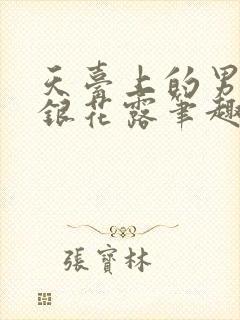 天臺上的男
銀花露筆趣
張寶林